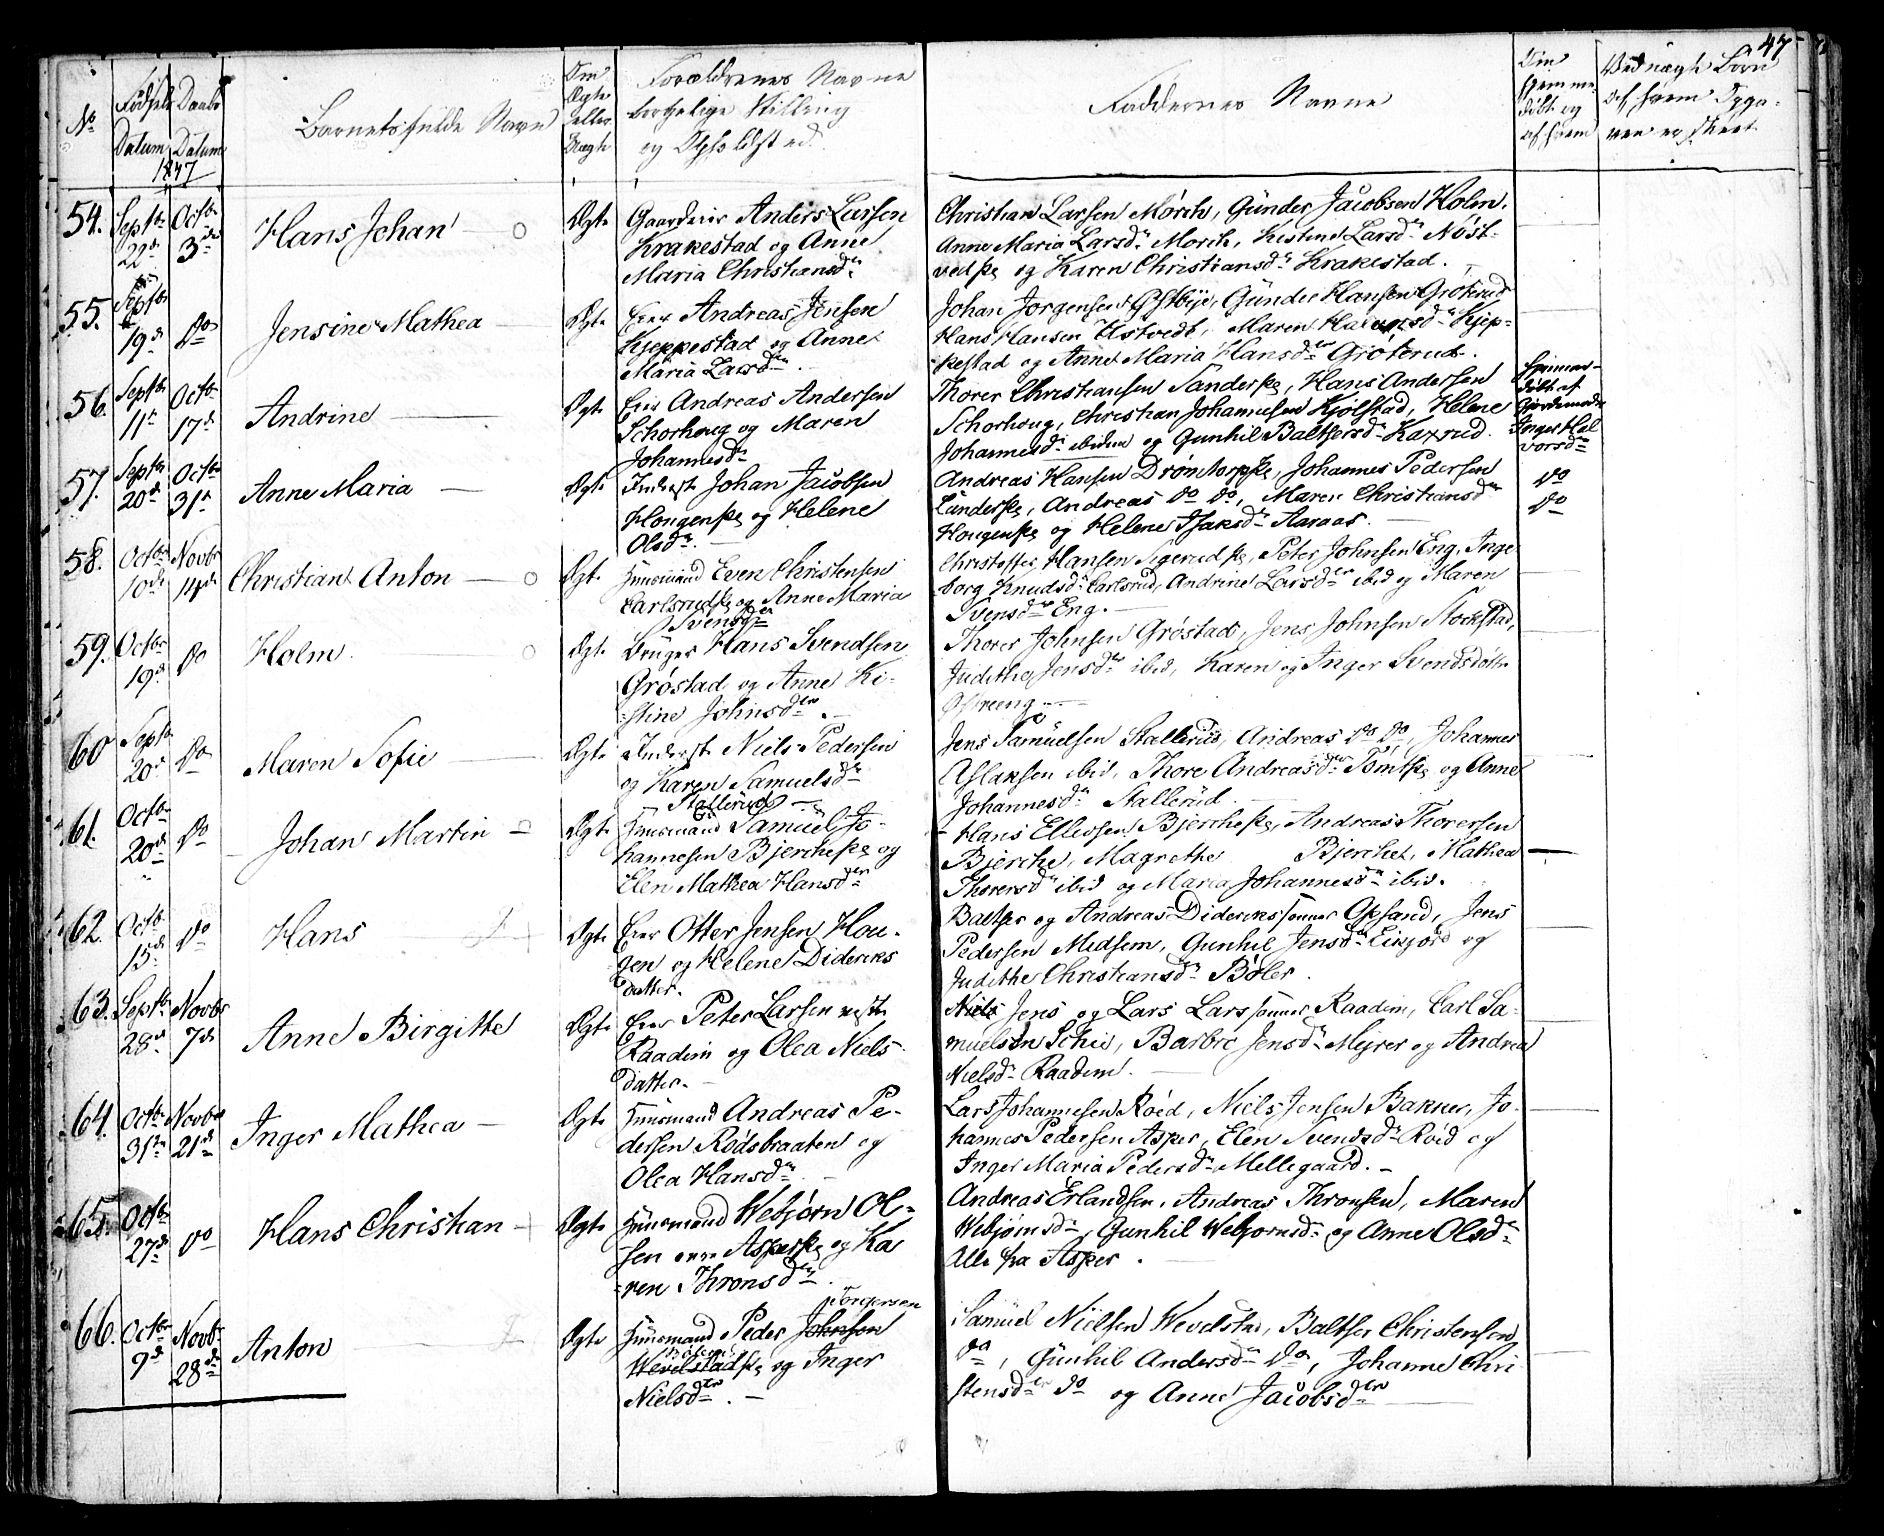 47
No
Fødsels Daabs
Datum Datum
1847
Barnets fulde Navn
Om
Ægte
eller
Uægte
Forældrenes Navne
borgelige Stilling
og Opholdsted
Faddernes Navne
Om
hjemme
døbt og
af hvem
Ved uægte Børn
af hvem
er skeet
54. Septbr 22de Octbr 3die Hans Johan Ægte
Gaardeier Anders Larsen
Krakestad og Anne
Maria Christiansdr
Christian Larsen Mørch, Günder Jacobsen Holm,
Anne Maria Larsdr Morch, Kistine Larsdr Nøst-
vedhe og Karen Christiansdr Krakestad.
55. Septbr 19de Do Jensine Mathea Ægte
Eier Andreas Jensen
Kjeppestad og Anne
Maria Larsdr
Johan Jorgensen Østbye, Günder Hansen Grøterud
Hans Hansen Ustvedt, Maren Hansdr Kjep-
pestad og Anne Maria Hansdr Grøterud.
56. Septbr 11te Octbr 17de Andrine Ægte
Eier Andreas Andersen
Schorhoug og Maren
Johannesdr
Thorer Christiansen Sanderhe, Hans Andersen
Schorhoug, Christian Johannesen Kjølstad, Helene
Johannesdr ibidem og Gunhil Baltsersdr Kaxrud.
Hjemme-
døbt af
Gjordemoder
Inger Hal
vorsdr
57. Septbr 20de Octbr 31te Anne Maria Ægte
Inderst Johan Jacobsen
Hougenhe og Helene
Olsdr
Andreas Hansen Drømtorphe, Johannes Pedersen
Sanderhe, Andreas Do Do, Maren Christiansdr
Hougenhe og Helene Isaksdr Aaraas.
Do
Do
58. Octbr 10de Novbr 14de Christian Anton Ægte
Huusmand Even Christensen
Carlsrudhe og Anne Maria
Svensdr
Christoffer Hansen Sigerudhe, Peter Johnsen Eng, Inge
borg Knudsdr Carlsrud, Andrine Larsdr ibid og Maren
Svensdr Eng.
59. Octbr 19de Do Holm Ægte
Bruger Hans Svendsen
Grøstad og Anne Ki-
stine Johnsdr
Thorer Johnsen Grøstad, Jens Johnsen Stokstad,
Judithe Jensdr ibid, Karen og Inger Svendsdøttr
Østreeng
60 Septbr 20de Do Maren Sofie Ægte
Inderst Niels Pedersen
og Karen Samuelsdr
Stallerud
Jens Samuelsen Stallerud, Andreas Do Do, Johannes
Aslaksen ibid, Thore Andreasdr Tomthe og Anne
Johannesdr Stallerud.
61. Octbr 20de Do Johan Martin Ægte
Huusmand Samuel Jo-
hannesen Bjerchehe og
Elen Mathea Hansdr
Hans Ellevsen Bjerchehe, Andreas Thorersen
Bjerche, Magrethe Bjerche, Mathea
Thorersdr ibid og Maria Johannesdr ibid.
62. Octbr 15de Do Hans Ægte
Eier Otter Jensen Hou-
gen og Helene Dideriks
datter.
Baltser og Andreas Dideriks sønner Opsand, Jens
Pedersen Midsem, Gunhil Jensdr Eikjord og
Judithe Christiansdr Bøler.
63. Septbr 28de Novbr 7de Anne Birgitte Ægte
Eier Peter Larsen vestre
Raadim og Olea Niels
datter.
Niels Jens og Lars Lars sønner Raadim, Carl Sa-
muelsen Schie, Barbro Jensdr Meyrer og Andrea
Nielsdr Raadim.
64. Octbr 31te Novbr 21de Inger Mathea Ægte
Huusmand Andreas Pe-
dersen Rødsbraaten og
Olea Hansdr
Lars Johannesen Roed, Niels Jensen Bakker, Jo-
hannes Pedersen Asper, Elen Svendsdr Roed og
Inger Maria Pedersdr Mellegaard.
65. Octbr 27de Do Hans Christian Ægte
Huusmand Webjørn Ol-
sen Asperhe og Ka
ren Thronsdr
Andreas Erlandsen, Andreas Thronsen, Maren
Webjørnsdr, Gunhil Webjornsdr og Anne Olsdr
Alle fra Asper.
66. Octbr 9de Novbr 28de Anton Ægte
Torgersen
Huusmand Peder Johnsen
Wevelstadhe og Inger
Nielsdr
Samuel Nielsen Wevelstad, Baltser Christensen
Do, Gunhil Andersdr Do, Johanne Chri
stensdr Do og Anne Jacobsdr